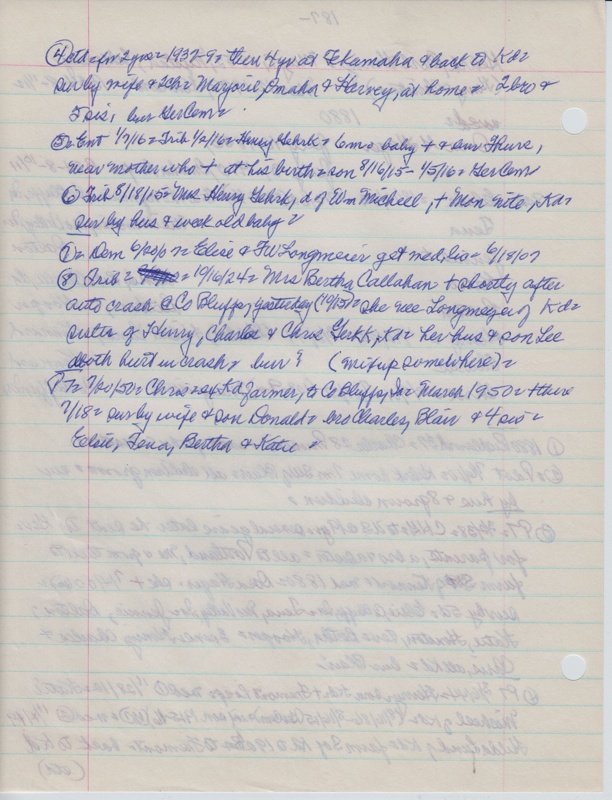 ④ ctd = for 2 yrs = 1937-9 = then 4 yr at Tekamaha & back to Kd =
sur by wife & 2ch = Marjorie, Omaha & Harvey, at home = 2 bro &
5 sis, bur GerCem =
⑤ = Ent 1/7/16 = Trib 1/2/16 = Henry Gehrk = 6 mo baby + & bur There,
near mother who + at his birth = son 8/16/15 - 1/5/16 = GerCem
⑥ Trib 8/18/15 = Mrs Henry Gehrk, d of Wm Micheel, + Mon nite, Kd =
sur by hus & week old baby =
7 = Dem 6/20/07 = Elise & FW Longmeier get med, lic = 6/18/07
⑧ Trib = 10/16/24 = Mrs Bertha Callahan + shortly after
auto crash @ Co Bluffs, yesterday (10/15) = she nee Longmeyer of Kd =
sister of Henry, Charles & Chris Gerkk, Kd = her hus & son Lee
both hurt in crash = bur? (writeup somewhere) =
9 T = 7/20/50 = Chris = ex Kd farmer, to Co Bluffs, Ia = March 1950 = + there
7/18 = sur by wife & son Donald = bro Charles, Blair & 4 sis =
Elsie, Lena, Bertha & Katie =